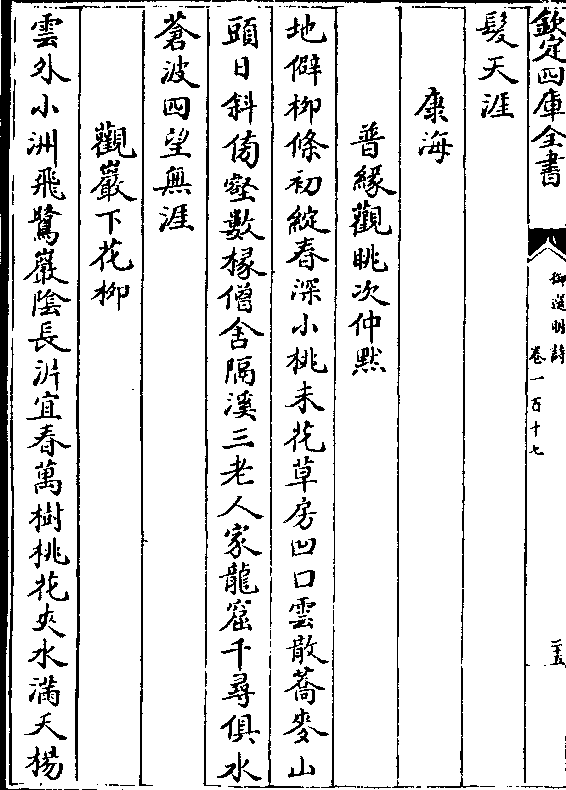 欽定四庫全書
御選明詩
卷一百十七
二十五
髮天涯
康海
普緣觀眺次仲黙
地僻柳條初綻春深小桃未花草房凹口雲散蕎麥山
頭日斜傍壑數椽僧舍隔溪三老人家龍窟千尋俱水
蒼波四望無涯
觀巖下花柳
雲外小洲飛鷺巖陰長泝宜春萬樹桃花夾水滿天楊